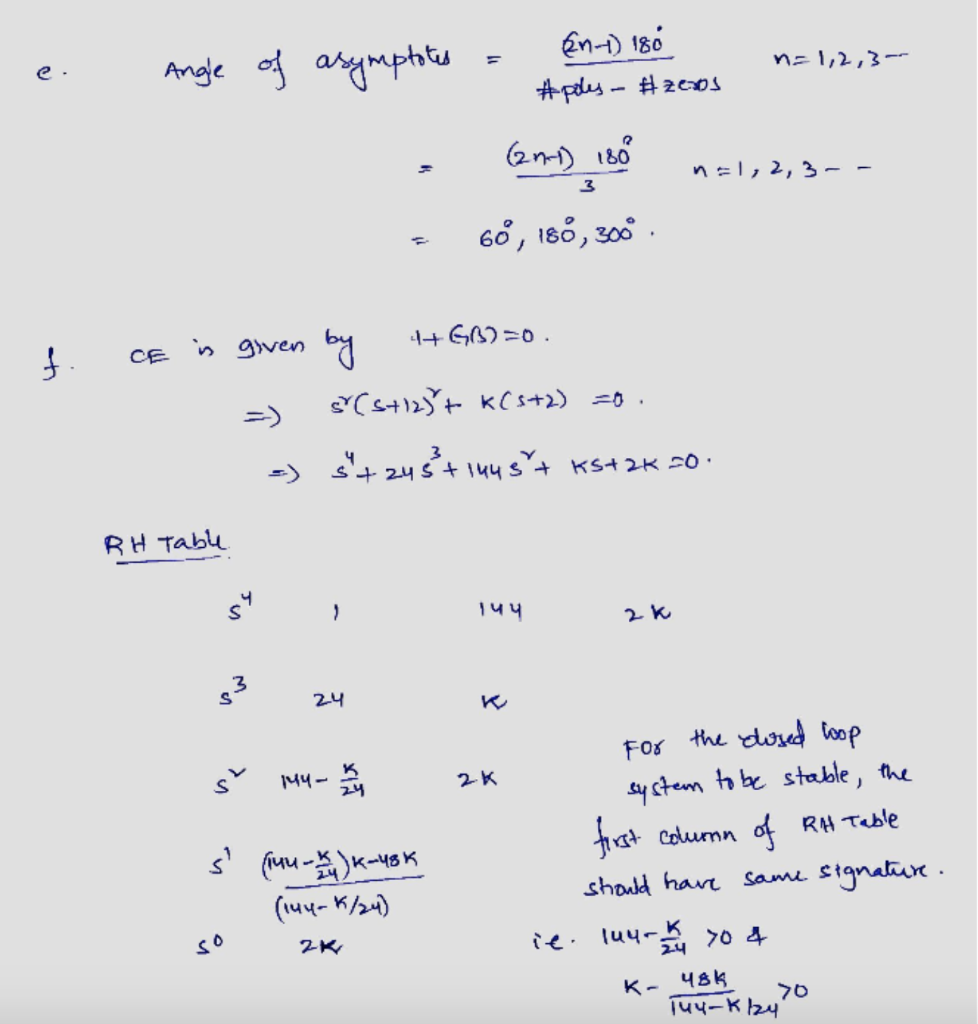 e. Angle of asymptotes = (2n-1) 180° / #poles - #zeros n=1,2,3--
= (2n-1) 180° / 3 n=1,2,3--
= 60°, 180°, 300°.
f. CE is given by 1+G(s)=0.
=> s²(s+12)²+ K(s+2) =0.
=> s⁴+24s³+144s²+ KS+2K=0.
RH Table
s⁴ 1 144 2K
s³ 24 K
s² 144- K/24 2K
s¹ (144-K/24)K-48K / (144-K/24)
s⁰ 2K
For the closed loop
system to be stable, the
first column of RH Table
should have same signature.
i.e. 144-K/24 >0 &
K- 48K / 144-K/24 >0